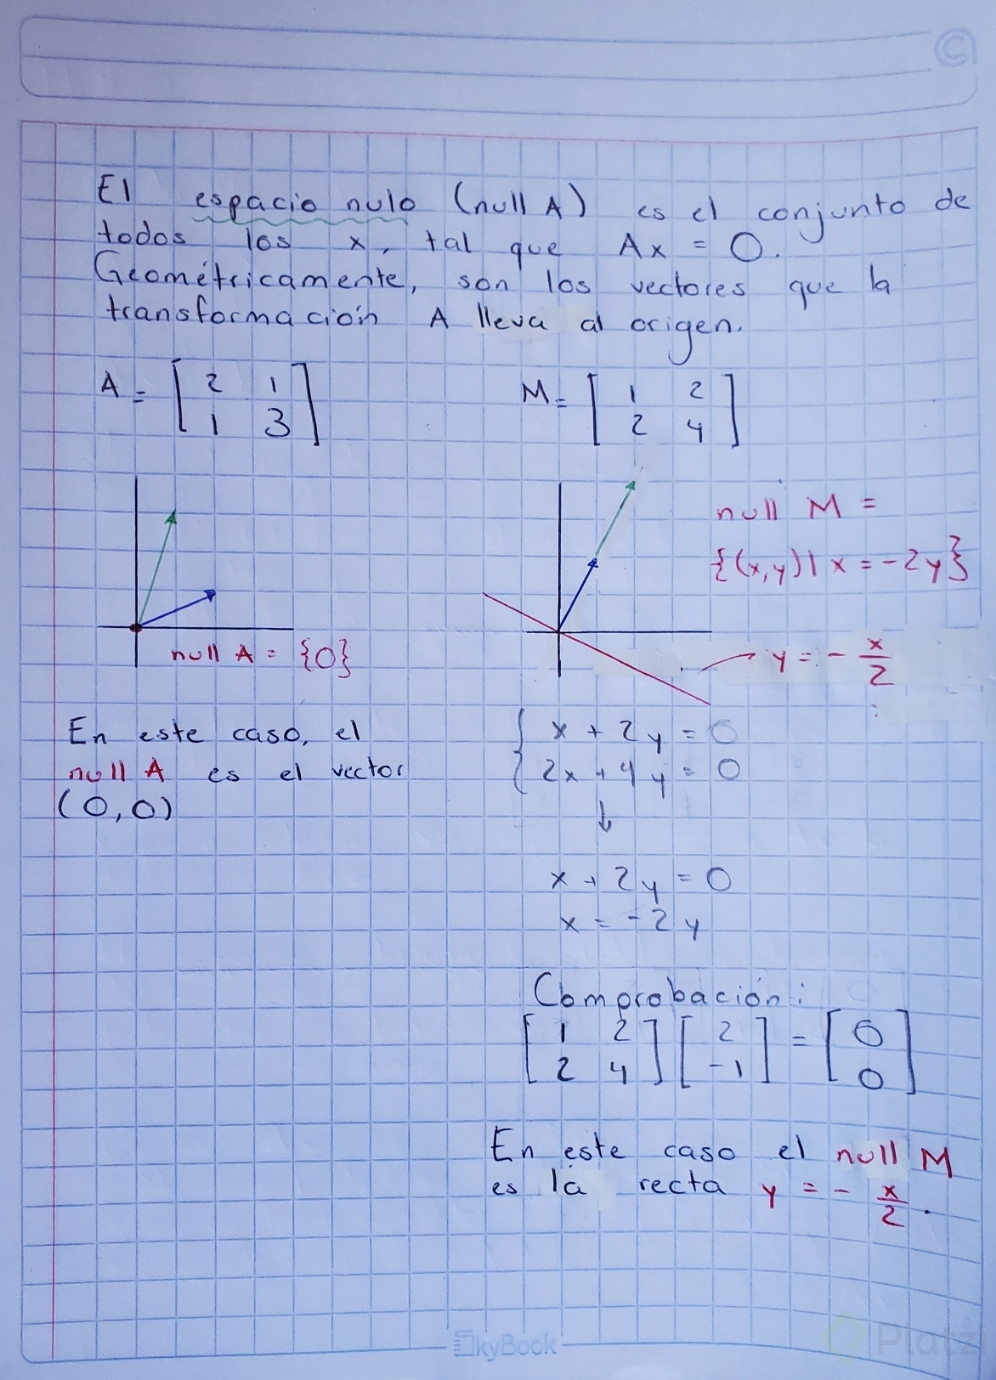 El espacio nulo (null A) es el conjunto de
todos los x, tal que Ax = 0.
Geométricamente, son los vectores que la
transformación A lleva al origen.
A = [2 1
1 3]
M = [1 2
2 4]
null A = {0}
null M =
{(x,y) | x = -2y}
y = - x/2
En este caso, el
null A es el vector
(0,0)
{ x + 2y = 0
2x + 4y = 0
↓
x + 2y = 0
x = -2y
Comprobación:
[1 2
2 4] [2
-1] = [0
0]
En este caso el null M
es la recta y = - x/2.
SkyBook
Platzi